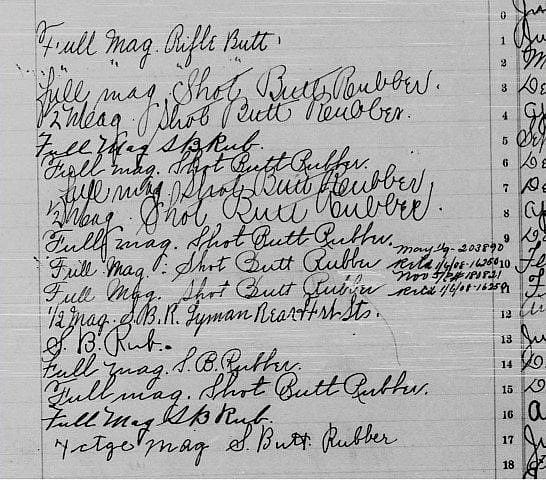 Full Mag. Rifle Butt.
full mag. Shot Butt Rubber.
1/2 Mag. Shot Butt Rubber.
Full Mag S B Rub.
Full mag. Shot Butt Rubber.
full mag Shot Butt Rubber
1/2 Mag. Shot Butt Rubber.
Full mag. Shot Butt Rubber.
Full Mag. Shot Butt Rubber
Full Mag. Shot Butt Rubber
1/2 Mag. S.B.R. Lyman Rear & Frt Sts.
S. B. Rub.
Full mag. S.B. Rubber.
Full mag. Shot Butt Rubber.
Full Mag S B Rub.
7 ctge mag S. Butt Rubber
May
203890
1/6/08-16250
Nov
181821
1/6/08-16251
0
1
2
3
4
5
6
7
8
9
10
11
12
13
14
15
16
17
18